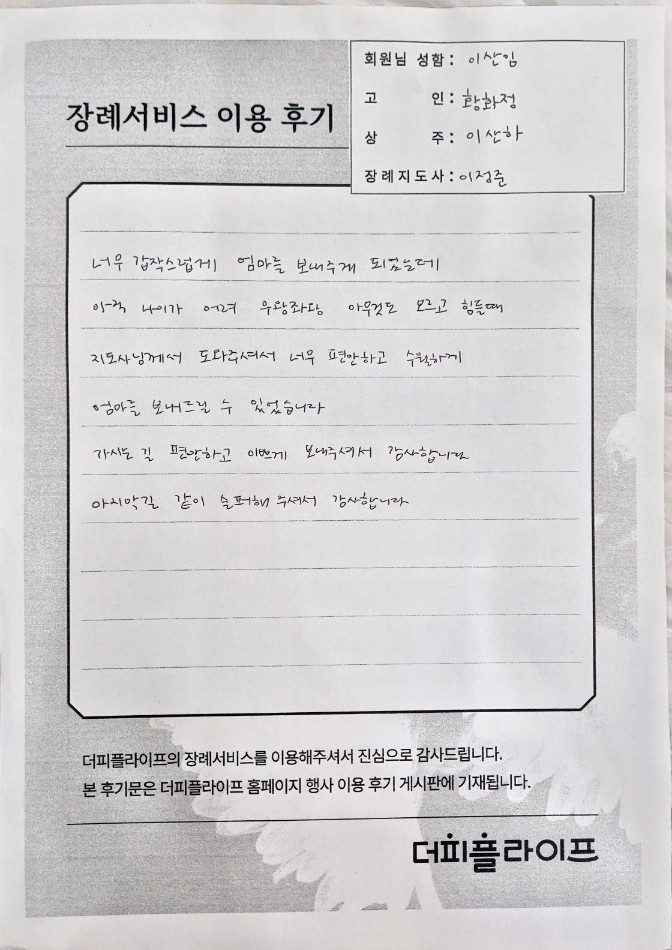 장례서비스 이용 후기
회원님 성함 : 이산임
고 인 : 황화정
상 주 : 이산하
장례지도사 : 이정준
너무 갑작스럽게 엄마를 보내주게 되었는데
아직 나이가 어려 우왕좌왕 아무것도 모르고 힘들때
지도사님께서 도와주셔서 너무 편안하고 수월하게
엄마를 보내드릴 수 있었습니다
가시는 길 편안하고 이쁘게 보내주셔서 감사합니다
마지막길 같이 슬퍼해 주셔서 감사합니다
더피플라이프의 장례서비스를 이용해주셔서 진심으로 감사드립니다.
본 후기문은 더피플라이프 홈페이지 행사 이용 후기 게시판에 기재됩니다.
더피플라이프